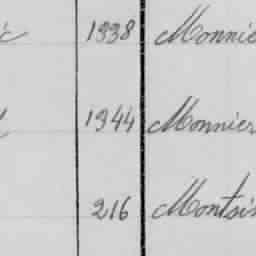 1938 Monnie
1944 Monnier
216 Montsi